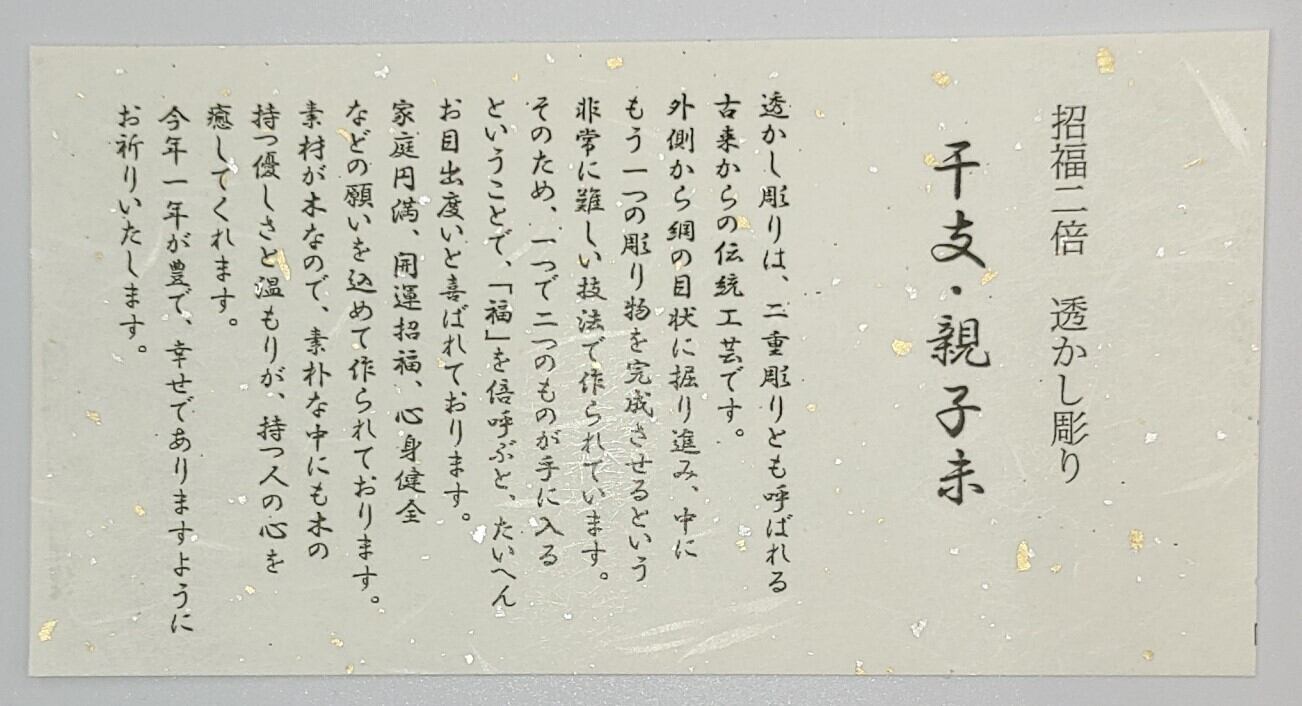 招福二倍 透かし彫り
干支・親子未
透かし彫りは、二重彫りとも呼ばれる
古来からの伝統工芸です。
外側から網の目状に掘り進み、中に
もう一つの彫り物を完成させるという
非常に難しい技法で作られています。
そのため、一つで二つのものが手に入る
ということで、「福」を倍呼ぶと、たいへん
お目出度いと喜ばれております。
家庭円満、開運招福、心身健全
などの願いを込めて作られております。
素材が木なので、素朴な中にも木の
持つ優しさと温もりが、持つ人の心を
癒してくれます。
今年一年が豊で、幸せでありますように
お祈りいたします。